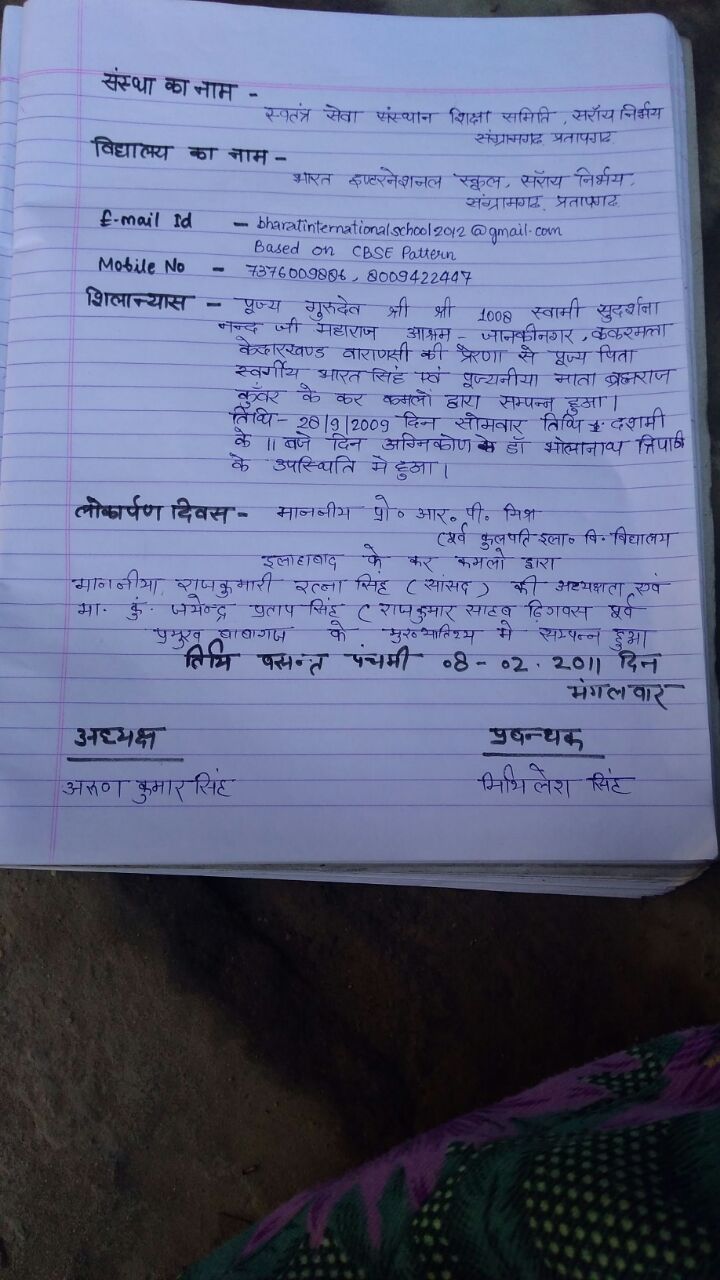 संस्था का नाम -
स्वतंत्र सेवा संस्थान शिक्षा समिति, सरॉय निर्भय
संग्रामगढ़ प्रतापगढ़
विद्यालय का नाम -
भारत इण्टरनेशनल स्कूल, सरॉय निर्भय,
संग्रामगढ़, प्रतापगढ़
E-mail Id - bharatinternationalschool2012@gmail.com
Based on CBSE Pattern
Mobile No - 7376009886, 8009422447
शिलान्यास - पूज्य गुरुदेव श्री श्री 1008 स्वामी सुदर्शना
नन्द जी महाराज आश्रम - जानकीनगर, ककरमत्ता
केदारखण्ड वाराणसी की प्रेरणा से पूज्य पिता
स्वर्गीय भारत सिंह एवं पूज्यनीया माता ब्रह्मराज
कुँवर के कर कमलों द्वारा सम्पन्न हुआ।
तिथि - 28/9/2009 दिन सोमवार तिथि दशमी
के 11 बजे दिन अग्निकोण में डॉ भोलानाथ त्रिपाठी
के उपस्थिति में हुआ।
लोकार्पण दिवस - माननीय प्रो० आर. पी. मिश्र
(पूर्व कुलपति इला० वि. विद्यालय
इलाहाबाद के कर कमलो द्वारा
माननीया राजकुमारी रत्ना सिंह (सांसद) की अध्यक्षता एवं
मा. कुं. जयेन्द्र प्रताप सिंह (राजकुमार साहब ढिंगवस पूर्व
प्रमुख बाबागंज के मुख्यातिथ्य मे सम्पन्न हुआ।
तिथि वसन्त पंचमी 08-02.2011 दिन
मंगलवार
अध्यक्ष प्रबन्धक
अरुण कुमार सिंह मिथिलेश सिंह